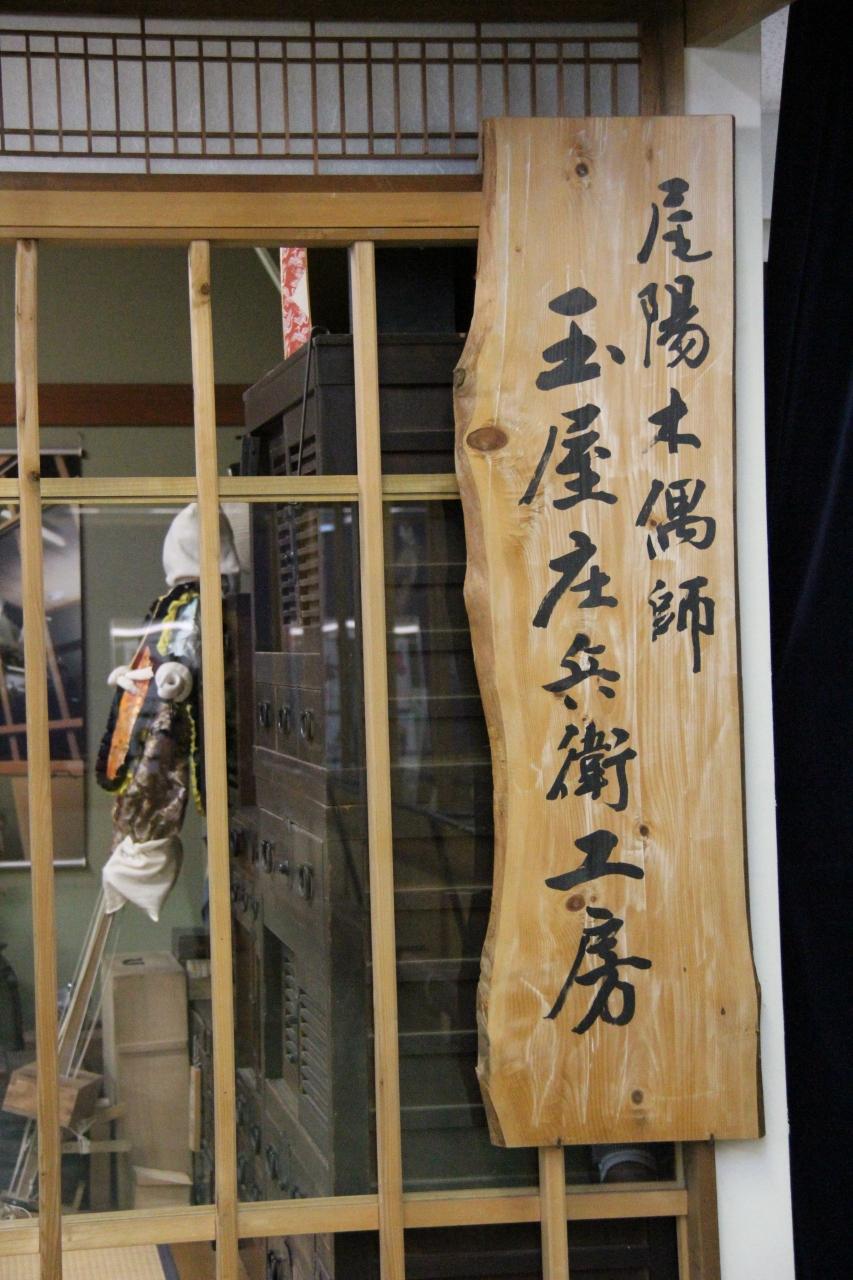 尾陽木偶師
玉屋庄兵衛工房